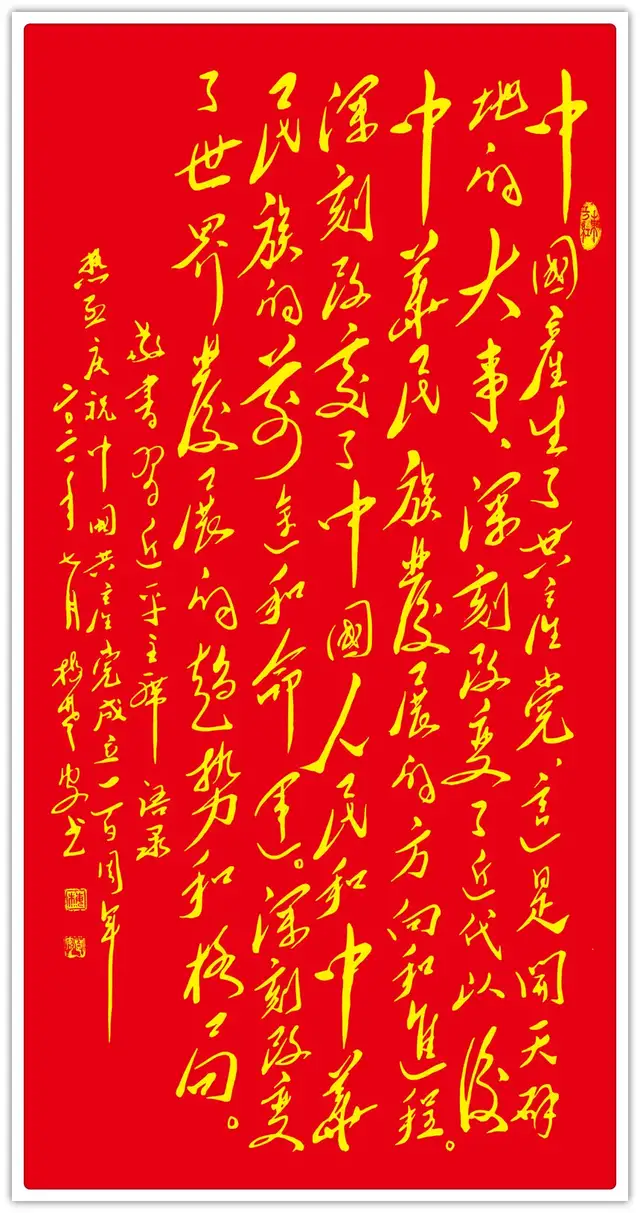 中國產生了共產党、這是開天辟
地的大事、深刻改变了近代以後
中華民族發展的方向和進程。
深刻改变了中國人民和中華
民族的前途和命運。深刻改变
了世界發展的趋势和格局。
恭書習近平主席语录
热烈庆祝中國共產党成立一百周年
二〇二一年七月 书